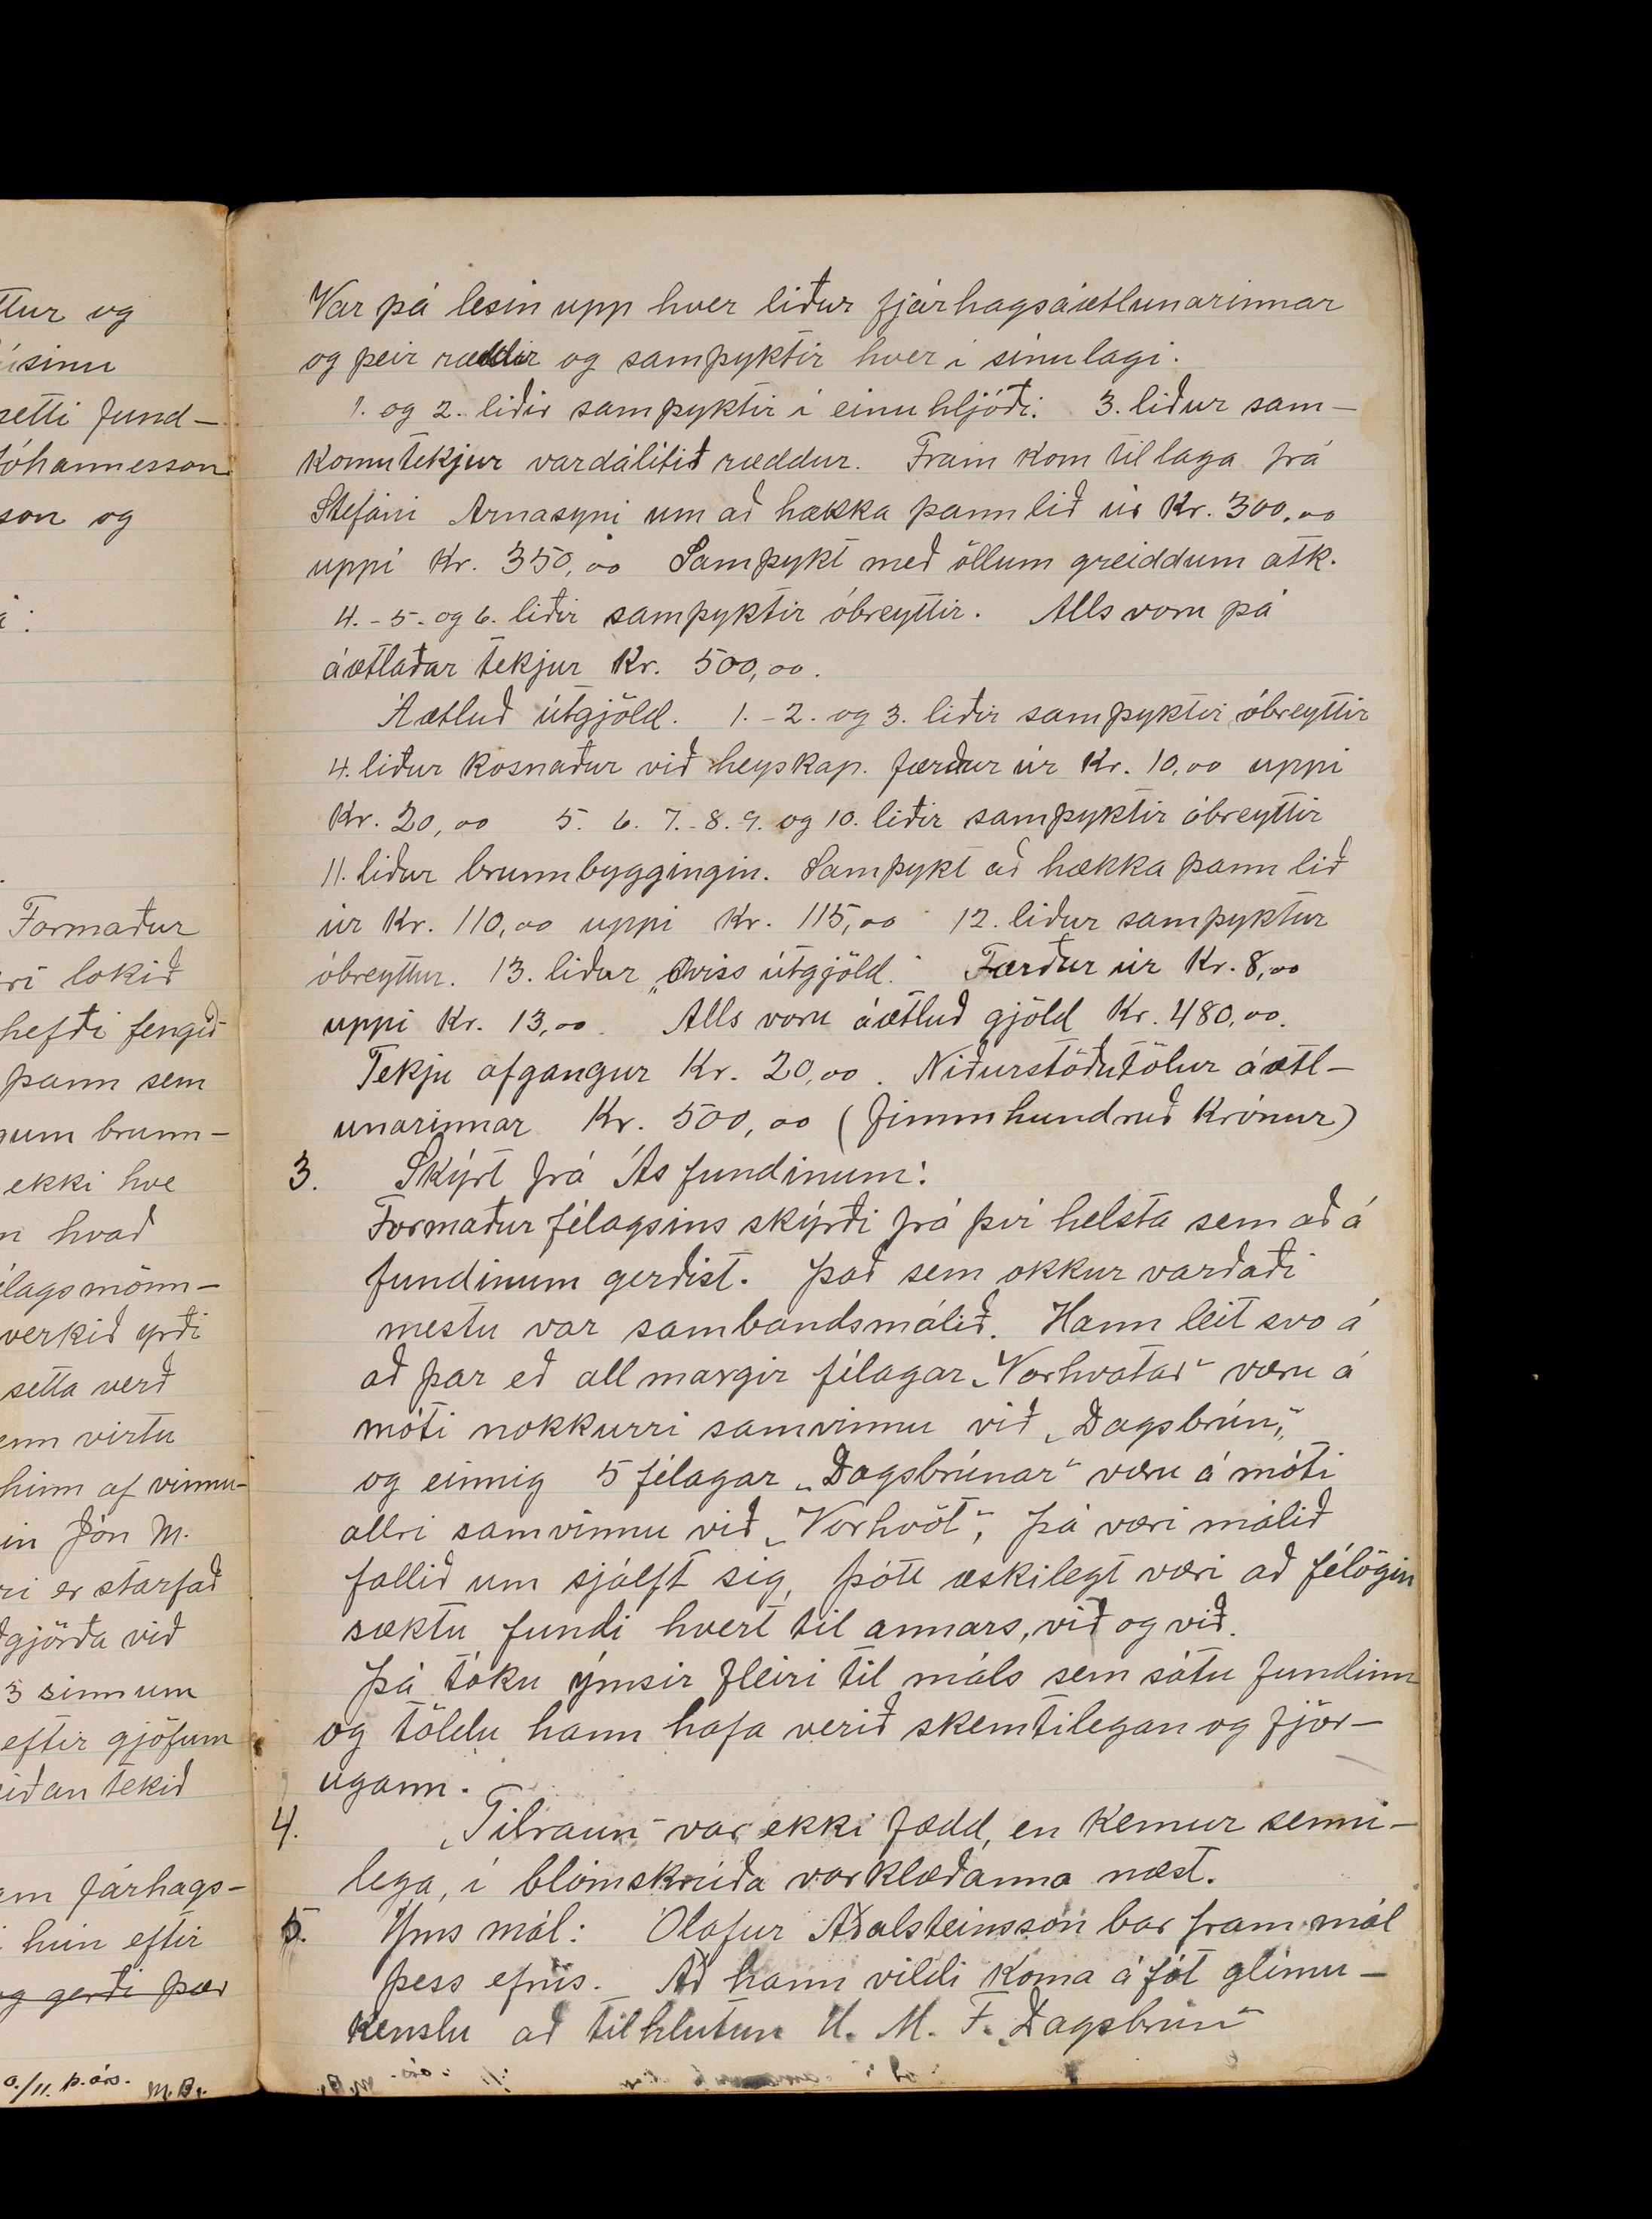 ttur og
úsinu
setti fund-
Jóhannesson
son og
Formaður
ri lokið
hefði fengið
þann sem
gum brunn-
ekki hve
n hvað
élagsmönn-
verkið yrði
setta verð
enn virtu
hinn af vinnu-
in Jón M.
ri er starfað
ðgjörða við
3 sinnum
eftir gjöfum
íðan tekið
em fjárhags-
i hún eftir
og gerði þær
0./11. þ.árs. M.B.
Var þá lesin upp hver liður fjárhagsáætlunarinnar
og þeir ræddir og samþyktir hver í sínu lagi.
1. og 2. liðir samþyktir í einu hljóði. 3. liður sam-
komutekjur var dálítið ræddur. Fram kom tillaga frá
Stefáni Árnasyni um að hækka þann lið úr Kr. 300,00
uppí Kr. 350,00 Samþykt með öllum greiddum atk.
4.-5. og 6. liðir samþyktir óbreyttir. Alls voru þá
áætlaðar tekjur Kr. 500,00.
Áætluð útgjöld. 1.-2. og 3. liðir samþyktir óbreyttir
4. liður kosnaður við heyskap. færður úr Kr. 10,00 uppí
Kr. 20,00 5. 6. 7.-8. 9. og 10. liðir samþyktir óbreyttir
11. liður brunnbyggingin. Samþykt að hækka þann lið
úr Kr. 110,00 uppí Kr. 115,00 12. liður samþyktur
óbreyttur. 13. liður „Óviss útgjöld." Færður úr Kr. 8,00
uppí Kr. 13,00. Alls voru áætluð gjöld Kr. 480,00.
Tekju afgangur Kr. 20,00. Niðurstöðutölur áætl-
unarinnar Kr. 500,00 (fimmhundruð Krónur)
3. Skýrt frá Ás fundinum:
Formaður félagsins skýrði frá því helsta sem að á
fundinum gerðist. Það sem okkur varðaði
mestu var sambandsmálið. Hann leit svo á
að þar eð all margir félagar „Vorhvatar" væru á
móti nokkurri samvinnu við „Dagsbrún",
og einnig 5 félagar „Dagsbrúnar" væru á móti
allri samvinnu við „Vorhvöt", þá væri málið
fallið um sjálft sig, þótt æskilegt væri að félögin
sæktu fundi hvert til annars, við og við.
Þá tóku ýmsir fleiri til máls sem sátu fundinn
og töldu hann hafa verið skemtilegan og fjör-
ugann.
4. „Tilraun" var ekki fædd, en kemur senni-
lega, í blómskrúða vorklæðanna næst.
5. Yms mál: Ólafur Aðalsteinsson bar fram mál
þess efnis. Að hann vildi koma á fót glímu-
kenslu að tilhlutun U. M. F. „Dagsbrún"